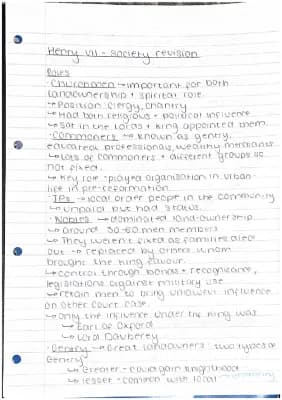 Henry VII - Society revision
Roles
· Churchmen → important for both
landownership + spiritual role.
↳ Position: Clergy, Chantry
↳ Had both religious + political influence
↳ Sat in the Lords + King appointed them.
· Commoners → known as gentry,
educated professionals, wealthy merchants.
↳ Lots of commoners + different groups so
not fixed.
↳ Key role - played organisation in urban
life in pre-reformation.
· JPs → local order people in the community
↳ unpaid but had status.
· Nobles → dominated land-ownership
↳ around 50-60 men members
↳ They weren't fixed as families died
out → replaced by others whom
brought the King favour.
↳ control through bonds + recognisance,
legislations against military use
↳ retain men to bring unlawful influence
on other court case.
↳ only the influence under the King was
↳ Earl of Oxford
↳ Lord Daubeney
· Gentry → Great landowners: two types of
Gentry
↳ Greater - could gain knighthood
↳ lesser - common with local